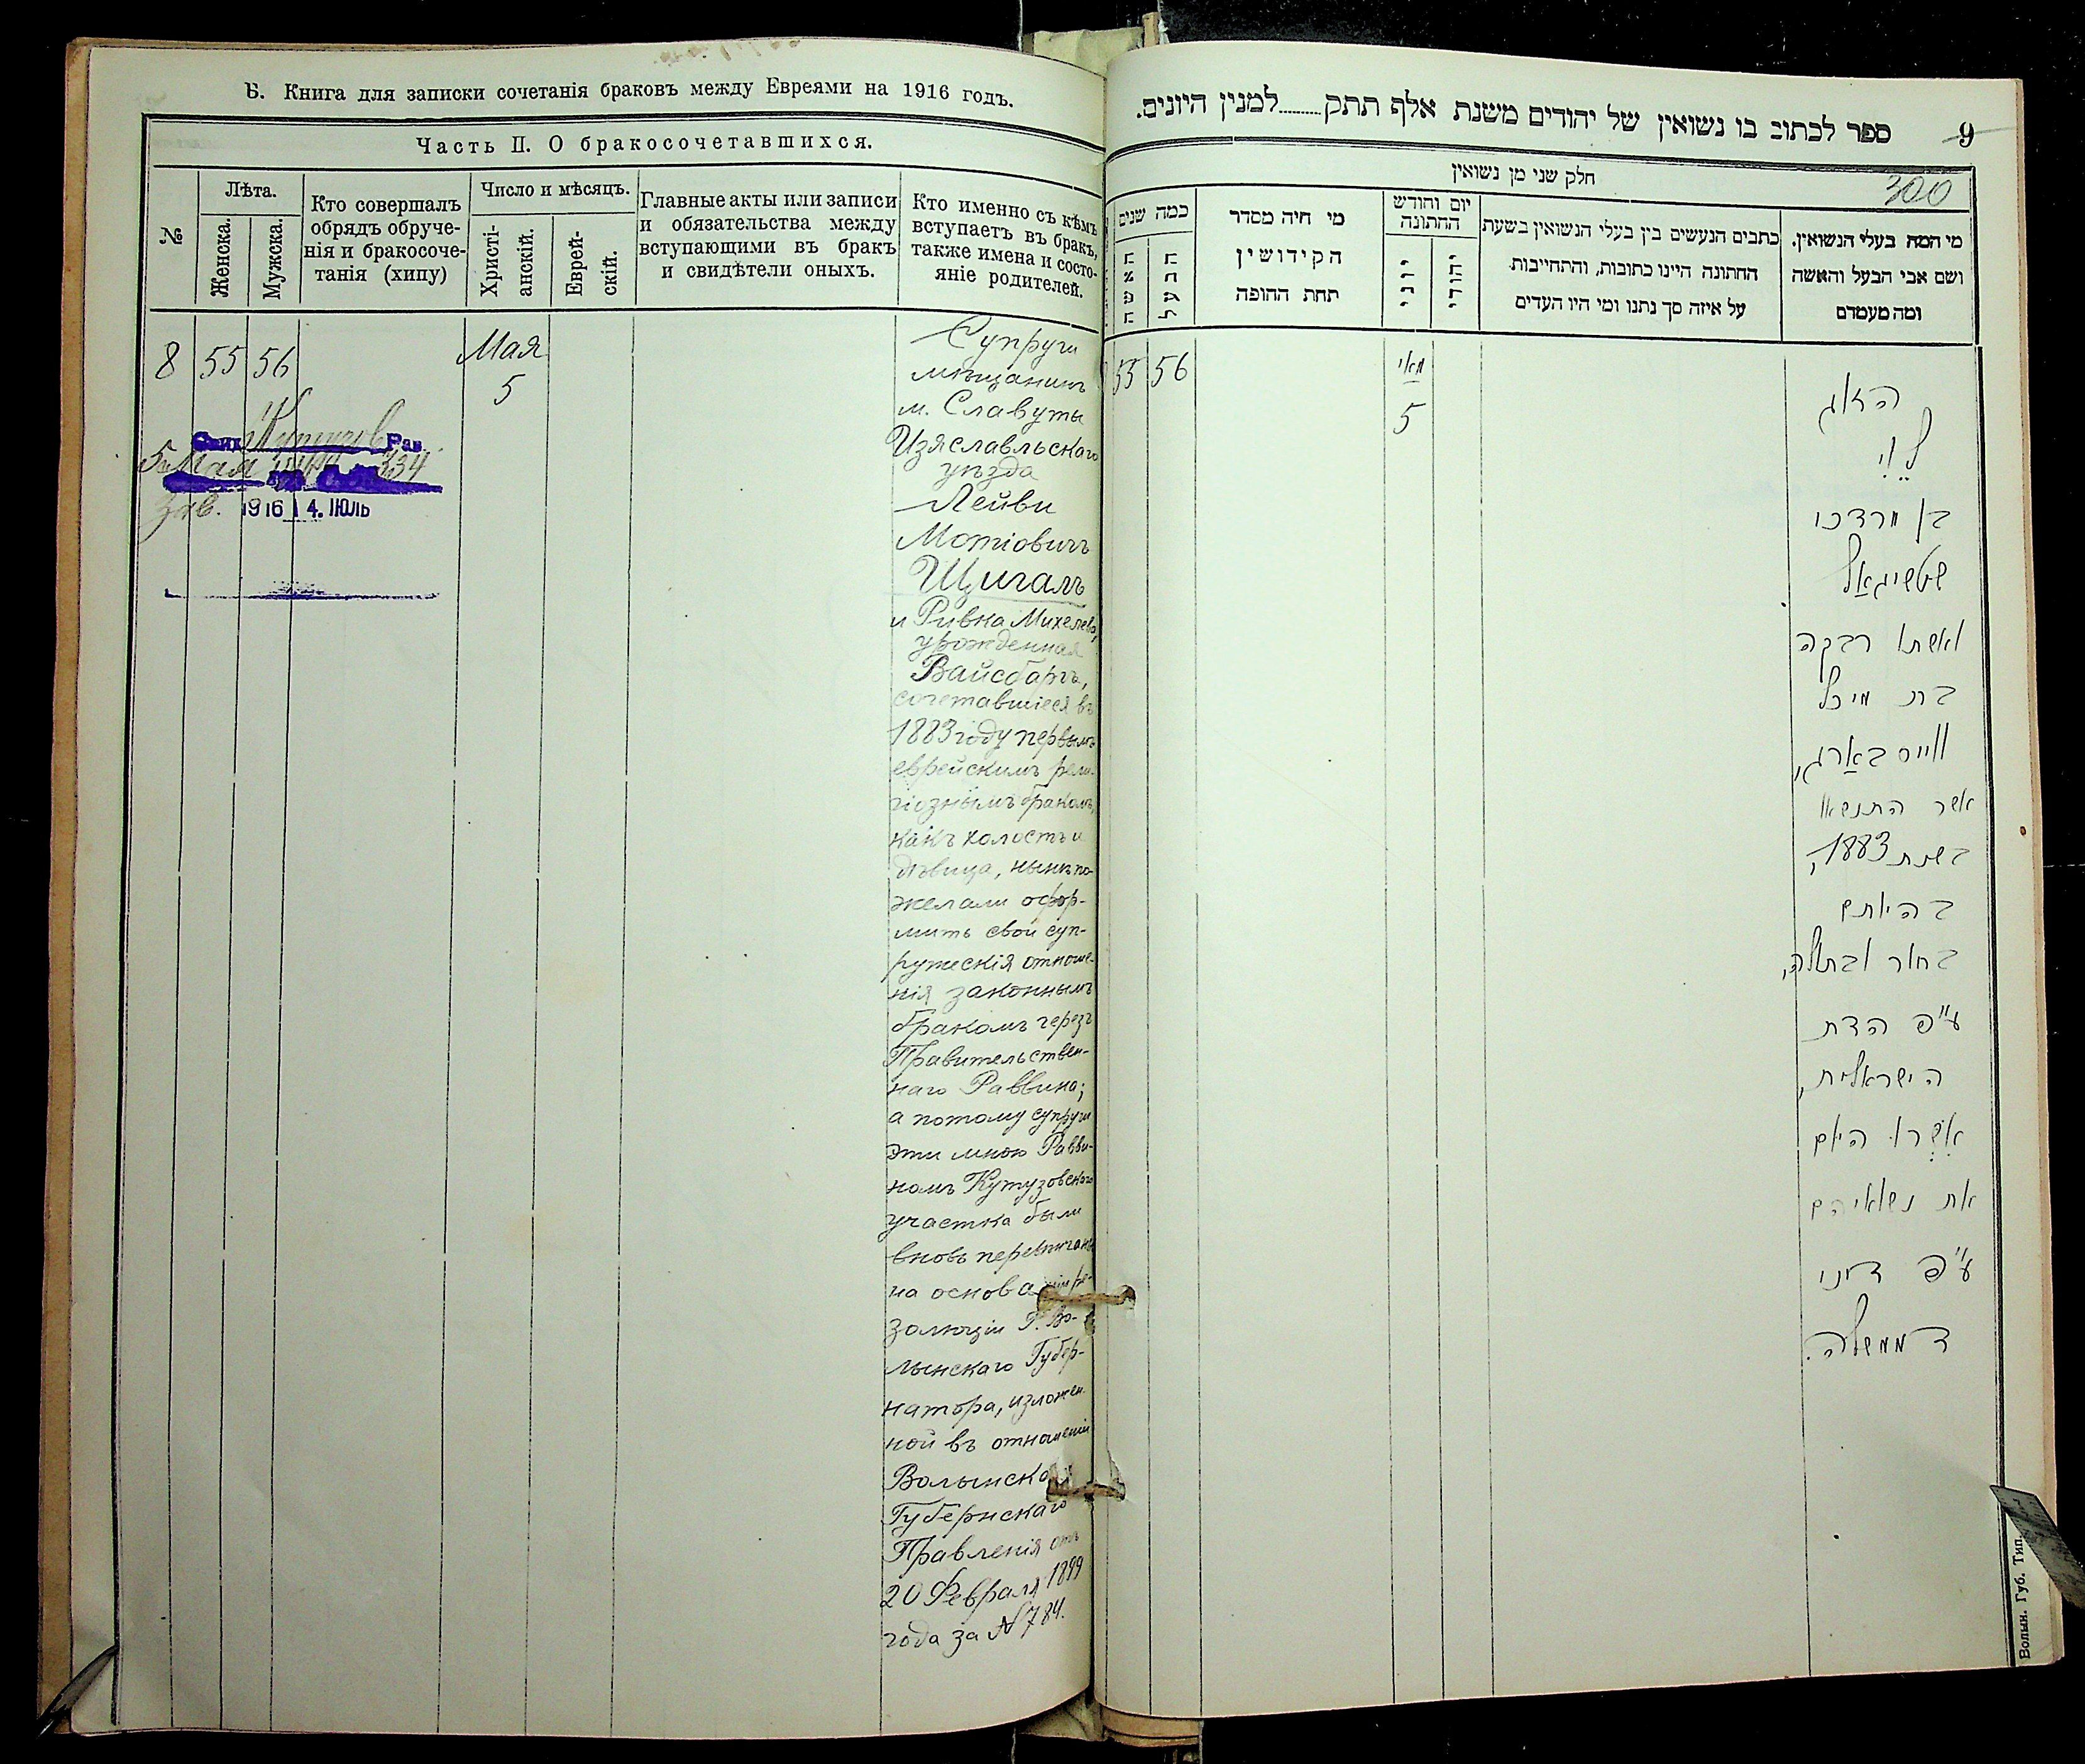 Б. Книга для записки сочетанія браковъ между Евреями на 1916 годъ.
Часть II. О бракосочетавшихся.
№
Лѣта.
Женска.
Мужска.
Кто совершалъ
обрядъ обруче-
нія и бракосоче-
танія (хипу)
Число и мѣсяцъ.
Христі-
анскій.
Еврей-
скій.
Главные акты или записи
и обязательства между
вступающими въ бракъ
и свидѣтели оныхъ.
Кто именно съ кѣмъ
вступаетъ въ бракъ,
также имена и состо-
яніе родителей.
8 55 56 Мая
5
5 Мая 334
1916 14. ІЮЛЬ
Супруги
мѣщанинъ
м. Славуты
Изяславльскаго
уѣзда
Лейви
Мотіовичъ
Щигаль
и Ривка Михелева,
урожденная
Вайсбаргъ,
сочетавшіеся въ
1883 году первымъ
еврейскимъ рели-
гіознымъ бракомъ,
какъ холостъ и
дѣвица, нынѣ по-
желали офор-
мить свои суп-
ружескія отноше-
нія законнымъ
бракомъ черезъ
Правительствен-
наго Раввина;
а потому супруги
эти мною Равви-
номъ Кутузовскаго
участка были
вновь перевѣнчаны
на основаніи ре-
золюціи Г. Во-
лынскаго Губер-
натора, изложен-
ной въ отношеніи
Волынскаго
Губернскаго
Правленія отъ
20 Февраля 1899
года за № 784.
ספר לכתוב בו נשואין של יהודים משנת אלף תתק........למנין היונים.
9
300
חלק שני מן נשואין
מי המה בעלי הנשואין.
ושם אבי הבעל והאשה
ומה מעמדם
כתבים הנעשים בין בעלי הנשואין בשעת
החתונה היינו כתובות, והתחייבות
על איזה סך נתנו ומי היו העדים
יום וחודש
החתונה
יהודי
יוני
מי היה מסדר
הקידושין
תחת החופה
כמה שנים
הבעל
האשה
55 56 מאי
5
הזוג
לוי
בן מרדכי
שטשיגאל
ואשתו רבקה
בת מיכל
ווייסבארג,
אשר התנשאו
בשנת 1883,
בהיותם
בחור ובתולה,
ע"פ הדת
הישראלית,
אשרו היום
את נשואיהם
ע"פ דיני
דממשלה.
Волын. Губ. Тип.